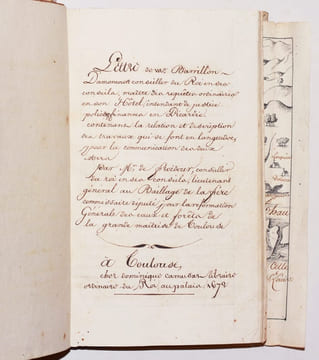 Lettre de vas Barrillon
Damoncourt conseiller du Roi en ses
conseils, maître des requêtes ordinaire
en son Hôtel, intendant de justice
police & finances en Picardie
contenans la relation et description
des travaux qui se font en languedoc,
pour la communication des deux
mers
Par Mr. de Froidour, conseiller
du roi en ses conseils, lieutenant
général au Baillage de la fère
commissaire député pour la reformation
Générale des eaux et forêts de
la grande maîtrise de Toulouse
à Toulouse,
chez dominique camusat libraire
ordinaire du Roi au palais, 1672